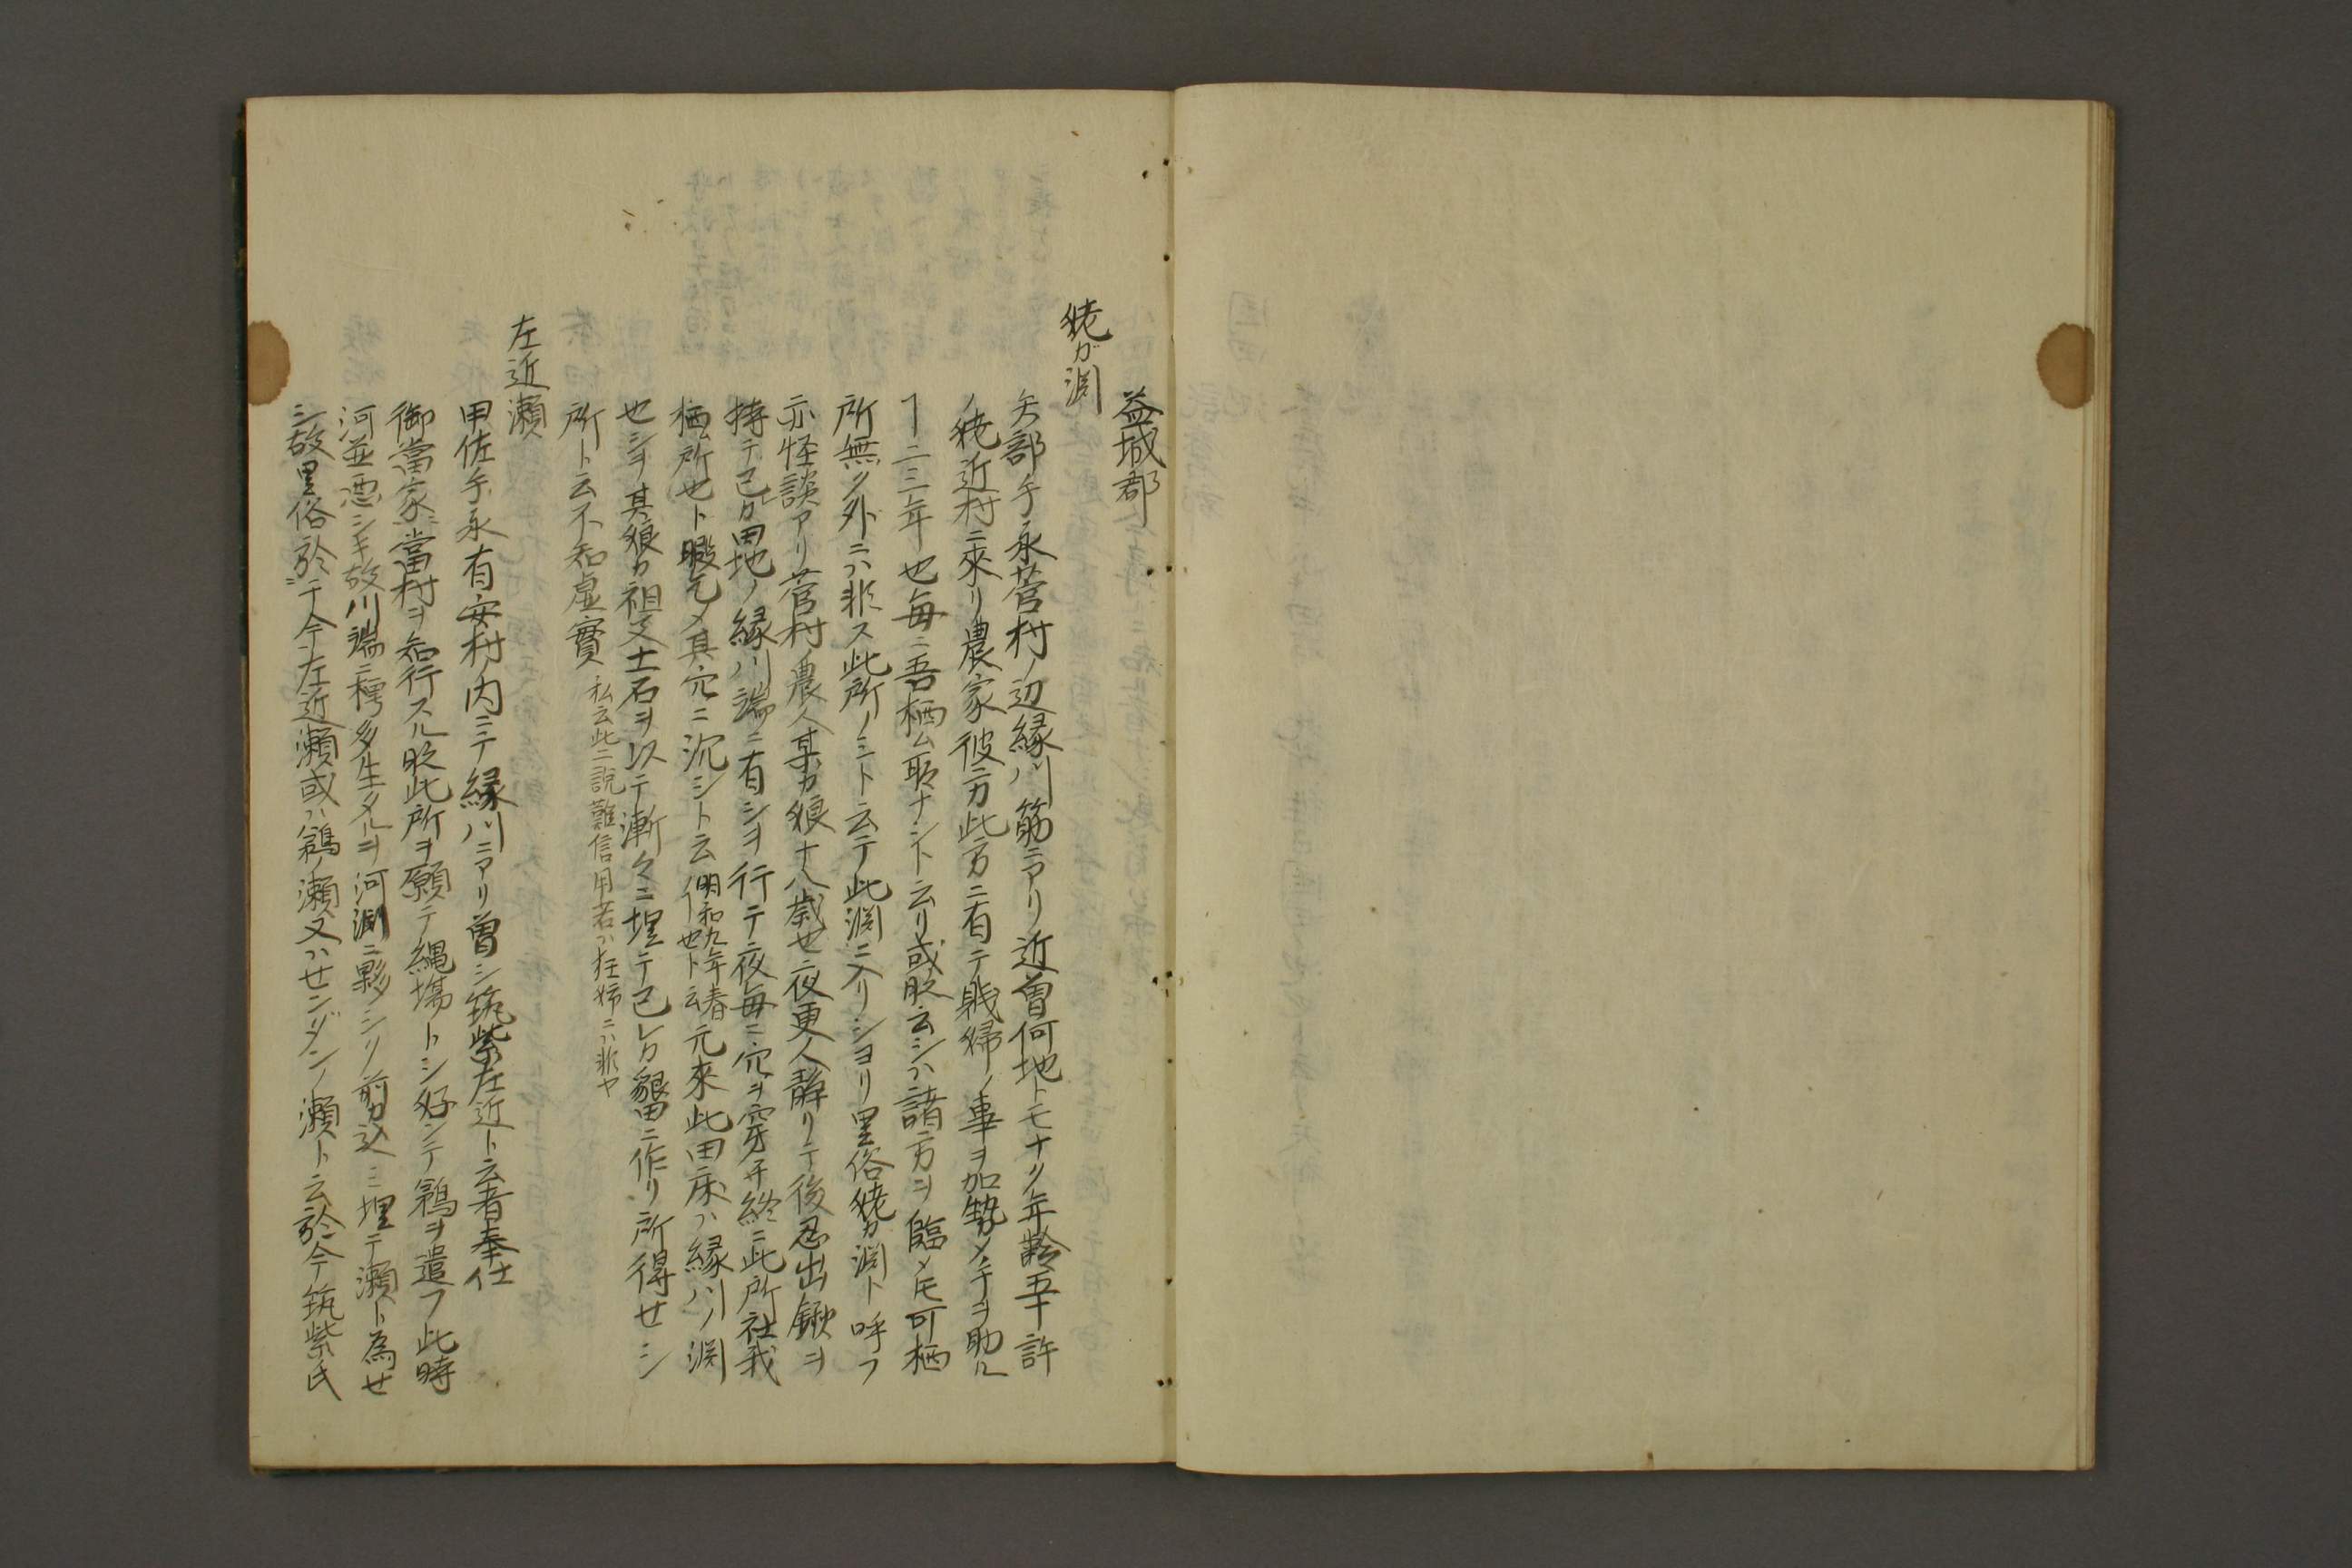 益城郡
狫ガ渕
矢部手永菅村ノ辺縁川筋ニアリ近曽何地トモナク年齢五十許
ノ狫近村ニ來リ農家彼方此方ニ有テ賎婦ノ事ヲ加勢メ手ヲ助ル
ヿ二三年也毎ニ吾栖ム取ナシト云リ或殴云シハ諸方ヲ臨メ𪜈可栖
所無ク外ニハ非ス此所ノミト云テ此渕ニ入リシヨリ里俗狫カ渕ト呼フ
亦怪談アリ菅村ノ農人某カ娘十八歳也夜更人静リテ後忍出鍬ヲ
持テ己レカ田地ノ縁川端ニ有シヲ行テ夜毎ニ穴ヲ穿チ終ニ此所社我
栖ム所也ト暇乞メ其穴ニ沉シト云明和九年春ノ
亇也ト云元來此田床ハ縁川ノ渕
也シヲ其娘カ祖父土石ヲ以テ漸々ニ埋テ己レカ墾田ニ作リ所得セシ
所ト云不知虚實私云此二説難信用若ハ狂婦ニハ非ヤ
左近瀬
甲佐手永有安村ノ内ニテ縁川ニアリ曽シ筑紫左近ト云者奉仕
御當家當村ヲ知行スル殴此所ヲ願テ縄塲トシ好ンテ鵜ヲ遣フ此時
河並悪シキ故川端ニ樗多生タルヲ河渕ニ夥シク剪込ミ埋テ瀬ト為セ
シ故里俗於テ今左近瀬或ハ鵜ノ瀬又ハセンダンノ瀬ト云於今筑紫氏